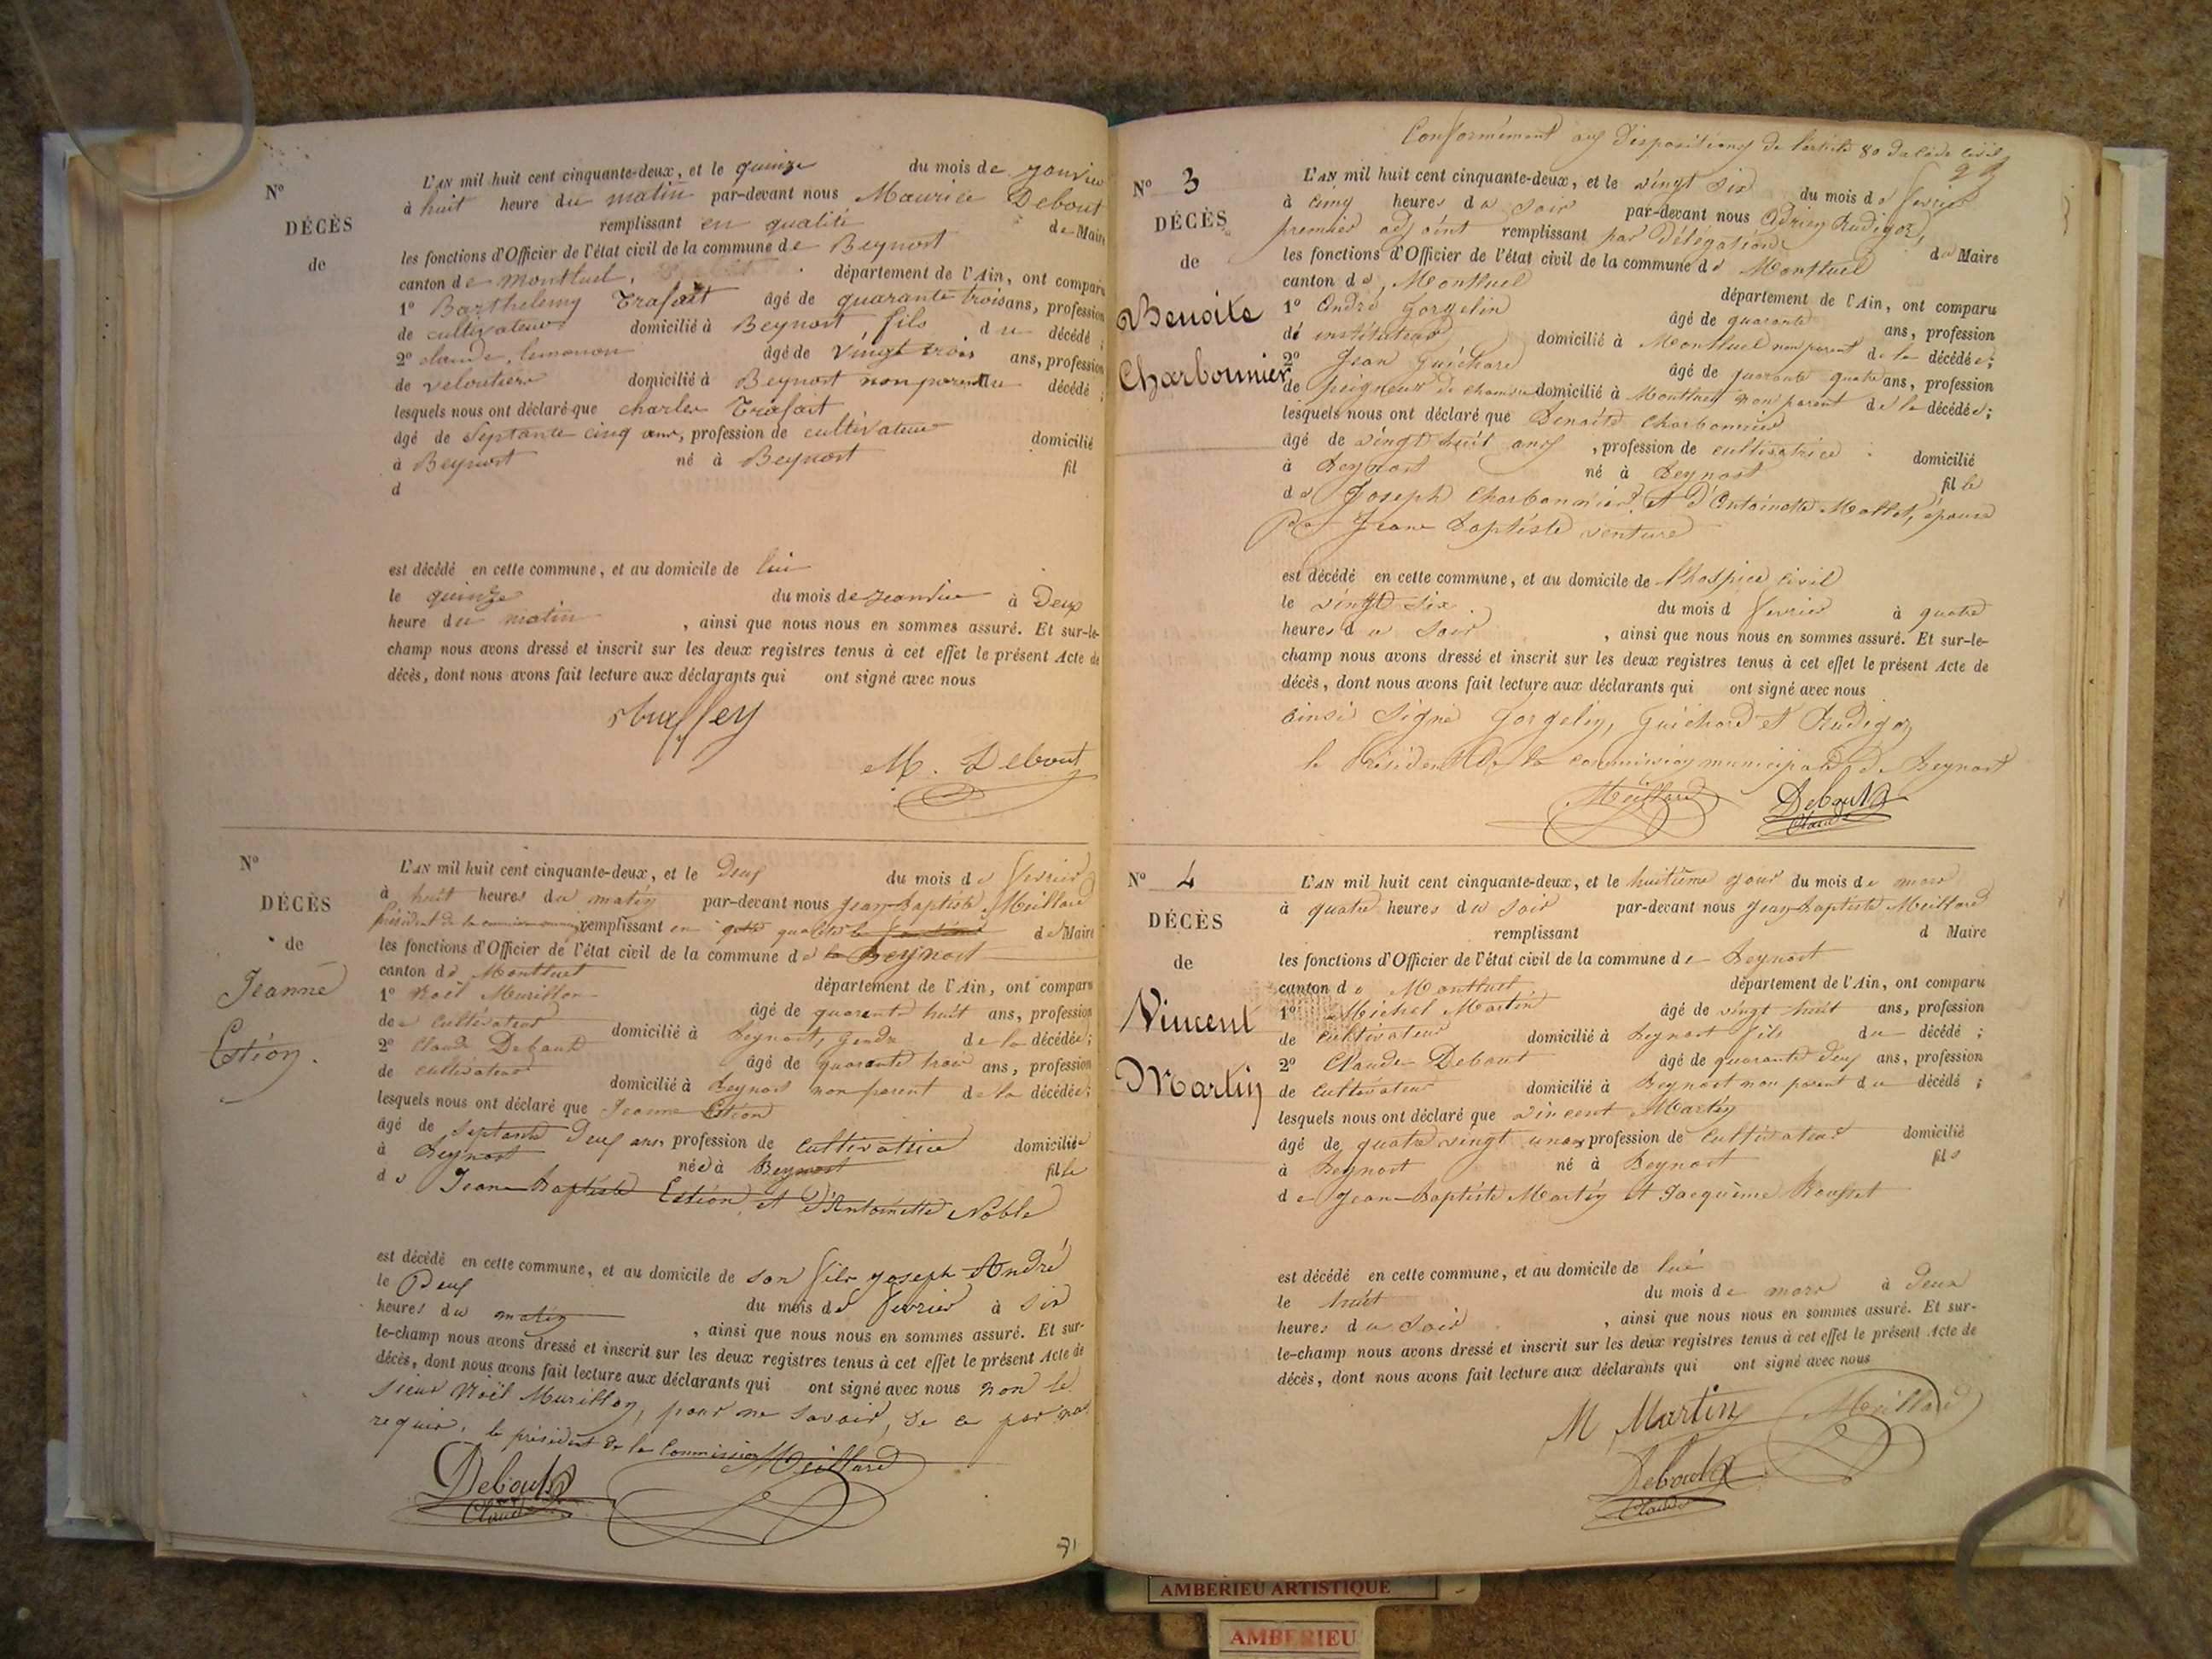 Nº
DÉCÈS
de
L'AN mil huit cent cinquante-deux, et le quinze du mois de janvier
à huit heure du matin par-devant nous Maurice Debout
remplissant en qualité de Maire
les fonctions d'Officier de l'état civil de la commune de Beynost
canton de montluel, département de l'Ain, ont comparu
1º Barthelemy Trafait âgé de quarante trois ans, profession
de cultivateur domicilié à Beynost, fils du décédé;
2º claude âgé de vingt trois ans, profession
de veloutier domicilié à Beynost non parent du décédé;
lesquels nous ont déclaré que charles Trafait
âgé de septante cinq ans, profession de cultivateur domicilié
à Beynost né à Beynost fil
d
est décédé en cette commune, et au domicile de lui
le quinze du mois de janvier à Deux
heure du matin, ainsi que nous nous en sommes assuré. Et sur-le-
champ nous avons dressé et inscrit sur les deux registres tenus à cet effet le présent Acte de
décès, dont nous avons fait lecture aux déclarants qui ont signé avec nous
M. Debout
Nº
DÉCÈS
de
Jeanne
Estion.
L'AN mil huit cent cinquante-deux, et le Deux du mois de fevrier
à huit heures du matin par-devant nous Jean-Baptiste Meillard
président de la commission remplissant en qualité de Maire
les fonctions d'Officier de l'état civil de la commune de Beynost
canton de Montluel département de l'Ain, ont comparu
1º Noël Murillon âgé de quarante huit ans, profession
de cultivateur domicilié à Beynost, Gendre de la décédée;
2º Claude Debout âgé de quarante trois ans, profession
de cultivateur domicilié à Beynost non parent de la décédée;
lesquels nous ont déclaré que Jeanne Estion
âgé de septante Deux ans, profession de cultivatrice domiciliée
à Beynost née à Beynost fille
de Jean-Baptiste Estion et d'Antoinette Noble
est décédé en cette commune, et au domicile de son fils joseph André
le Deux du mois de fevrier à six
heures du matin, ainsi que nous nous en sommes assuré. Et sur-
le-champ nous avons dressé et inscrit sur les deux registres tenus à cet effet le présent Acte de
décès, dont nous avons fait lecture aux déclarants qui ont signé avec nous non le
sieur Noël Murillon, pour ne savoir, de ce par nous
requis. le président de la Commission Meillard
Debout
Claude
71
Conformément aux Dispositions de l'article 80 du Code civil
Nº 3
DÉCÈS
de
Benoite
Charbonnier
L'AN mil huit cent cinquante-deux, et le vingt six du mois de fevrier
à cinq heures du soir par-devant nous Adrien Rudigoz,
premier adjoint remplissant par délégation du Maire
les fonctions d'Officier de l'état civil de la commune de Montluel
canton de Montluel département de l'Ain, ont comparu
1º André Gorgelin âgé de quarante ans, profession
de instituteur domicilié à Montluel non parent de la décédée;
2º Jean Guichard âgé de quarante quatre ans, profession
de peigneur de chanvre domicilié à Montluel non parent de la décédée;
lesquels nous ont déclaré que Benoite Charbonnier
âgé de vingt huit ans, profession de cultivatrice domicilié
à Beynost né à Beynost fille
de Joseph Charbonnier et d'Antoinette Mallet, épouse
De Jean Baptiste venture
est décédé en cette commune, et au domicile de l'hospice civil
le vingt six du mois d fevrier à quatre
heures du soir, ainsi que nous nous en sommes assuré. Et sur-le-
champ nous avons dressé et inscrit sur les deux registres tenus à cet effet le présent Acte de
décès, dont nous avons fait lecture aux déclarants qui ont signé avec nous
ainsi signé Gorgelin, Guichard et Rudigoz
le Président De la commission municipale de Beynost
Meillard Debout
Claude
Nº 4
DÉCÈS
de
Vincent
Martin
L'AN mil huit cent cinquante-deux, et le huitième jour du mois de mars
à quatre heures du soir par-devant nous Jean-Baptiste Meillard
remplissant d Maire
les fonctions d'Officier de l'état civil de la commune de Beynost
canton de Montluel département de l'Ain, ont comparu
1º Michel Martin âgé de vingt huit ans, profession
de cultivateur domicilié à Beynost fils du décédé;
2º Claude Debout âgé de quarante deux ans, profession
de cultivateur domicilié à Beynost non parent du décédé;
lesquels nous ont déclaré que vincent Martin
âgé de quatre vingt un ans profession de cultivateur domicilié
à Beynost né à Beynost fils
de Jean-Baptiste Martin et Jacquème Rousset
est décédé en cette commune, et au domicile de lui
le huit du mois de mars à deux
heures du soir, ainsi que nous nous en sommes assuré. Et sur-
le-champ nous avons dressé et inscrit sur les deux registres tenus à cet effet le présent Acte de
décès, dont nous avons fait lecture aux déclarants qui ont signé avec nous
M Martin Meillard
Debout
Claude
AMBERIEU ARTISTIQUE
AMBERIEU